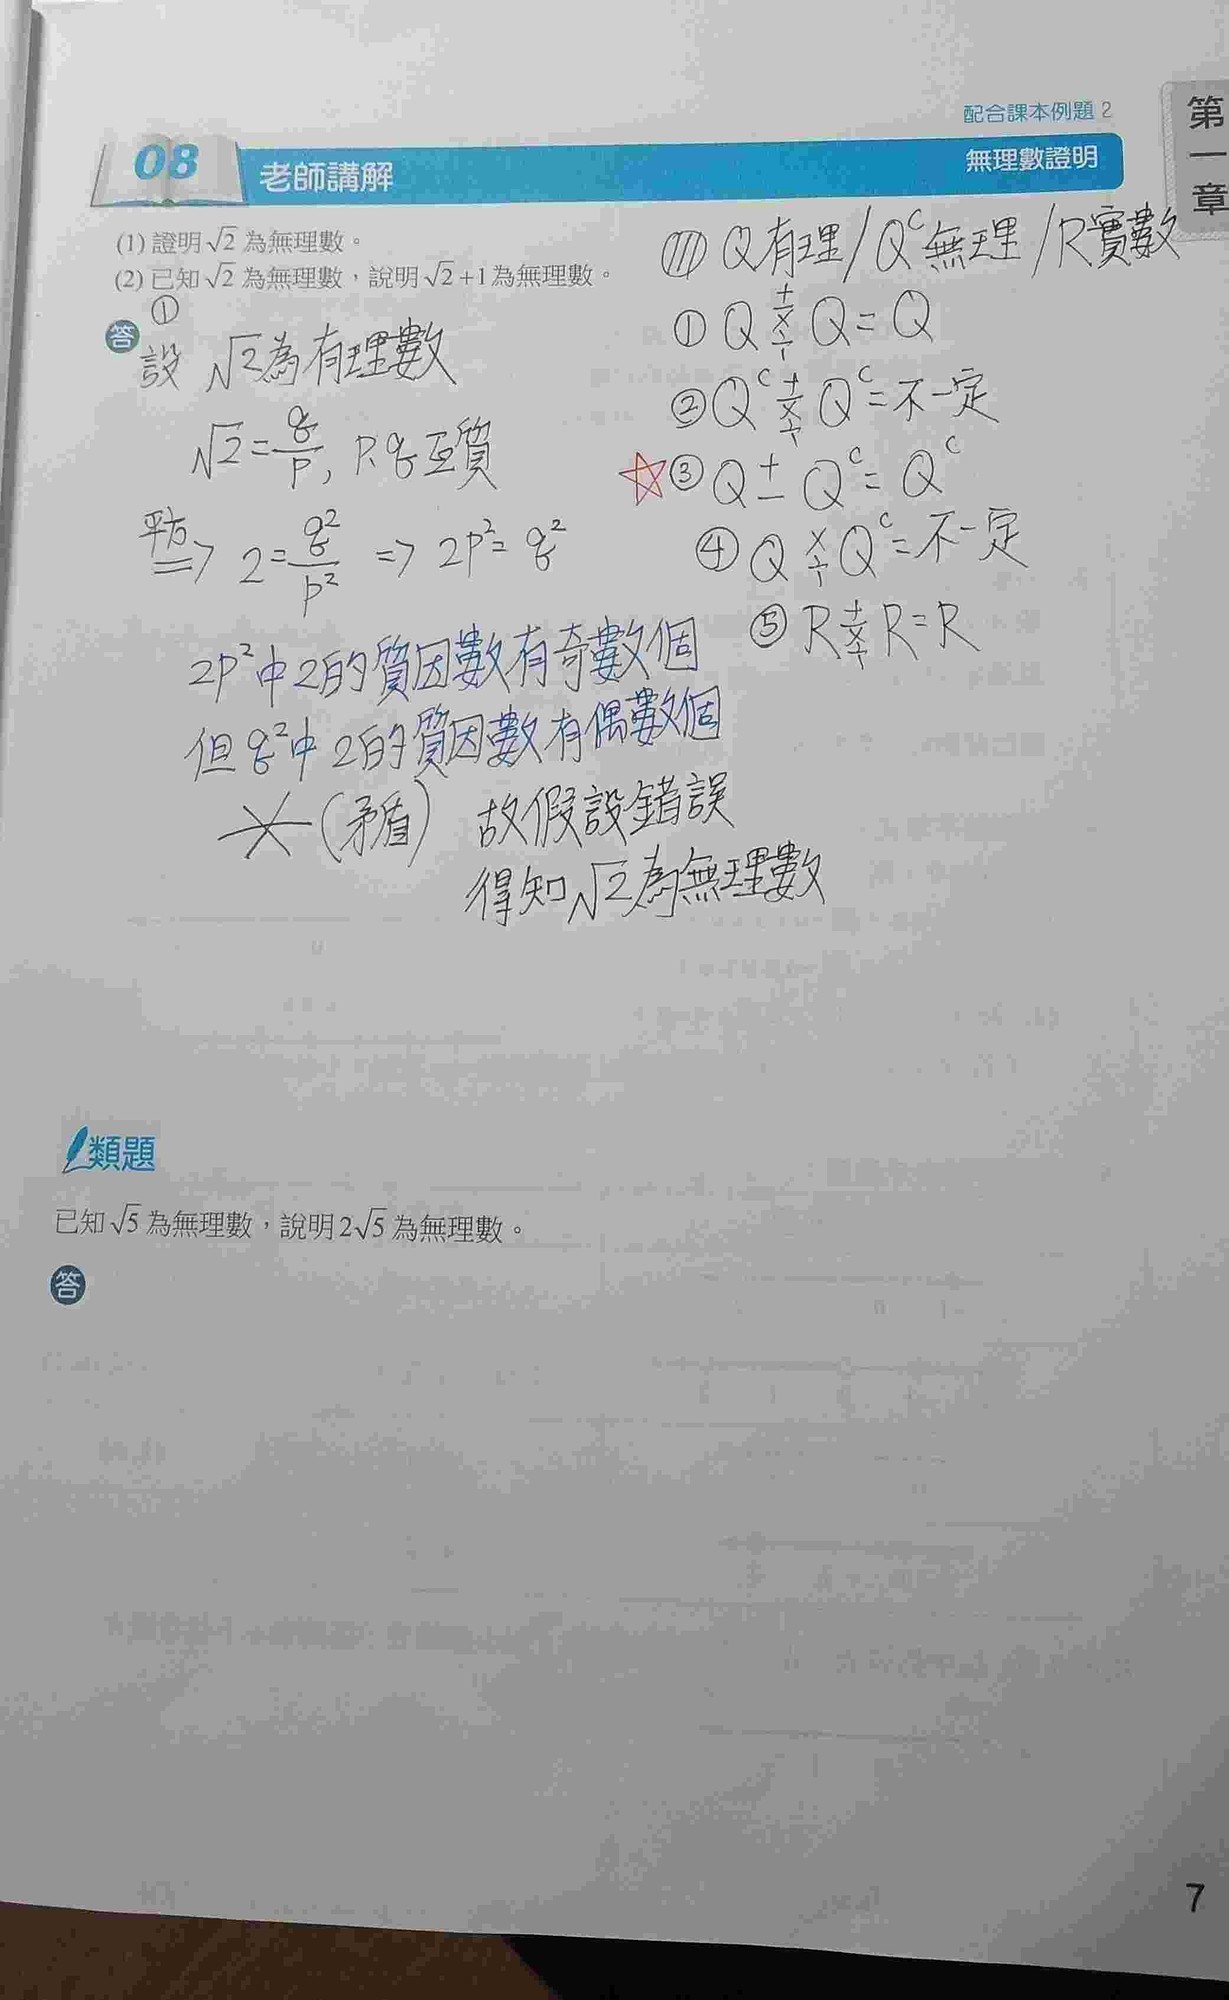 配合課本例題 2
第一章
08 老師講解 無理數證明
(1) 證明√2 為無理數。
(2) 已知√2 為無理數，說明√2+1為無理數。
答 ①
設 √2為有理數
√2=q/p, p.q互質
平方⇒ 2=q²/p² => 2p²=q²
2p²中2的質因數有奇數個
但q²中2的質因數有偶數個
(矛盾) 故假設錯誤
得知√2為無理數
Q有理/Qᶜ無理/R實數
① Q +-×÷ Q = Q
② Qᶜ +-×÷ Qᶜ = 不一定
☆③ Q ± Qᶜ = Qᶜ
④ Q ×÷ Qᶜ = 不一定
⑤ R +-×÷ R = R
類題
已知√5 為無理數，說明2√5 為無理數。
答
7